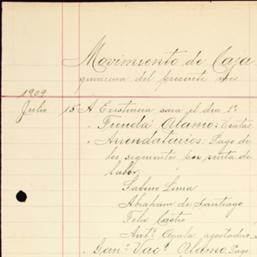 Movimiento de Caja
quincena del presente mes
1909
Julio 15 A Existencia para el dia 1º
" Tienda Alamo: Ventas
" Arrendatarios: Pago de
los siguientes por renta de
labor,
Sabino Luna
Abraham de Santiago
Felix Castro
Antº Ayala agostadero
" Ganº Vacº Alamo, Pago